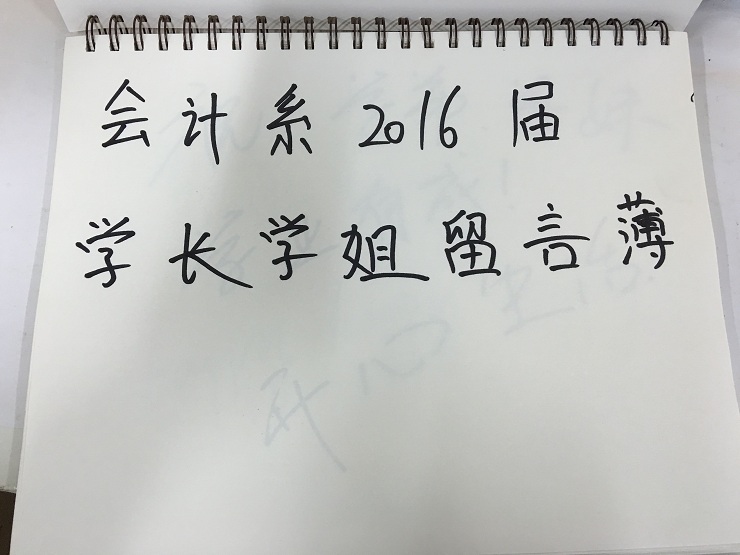 会计系2016届
学长学姐留言薄